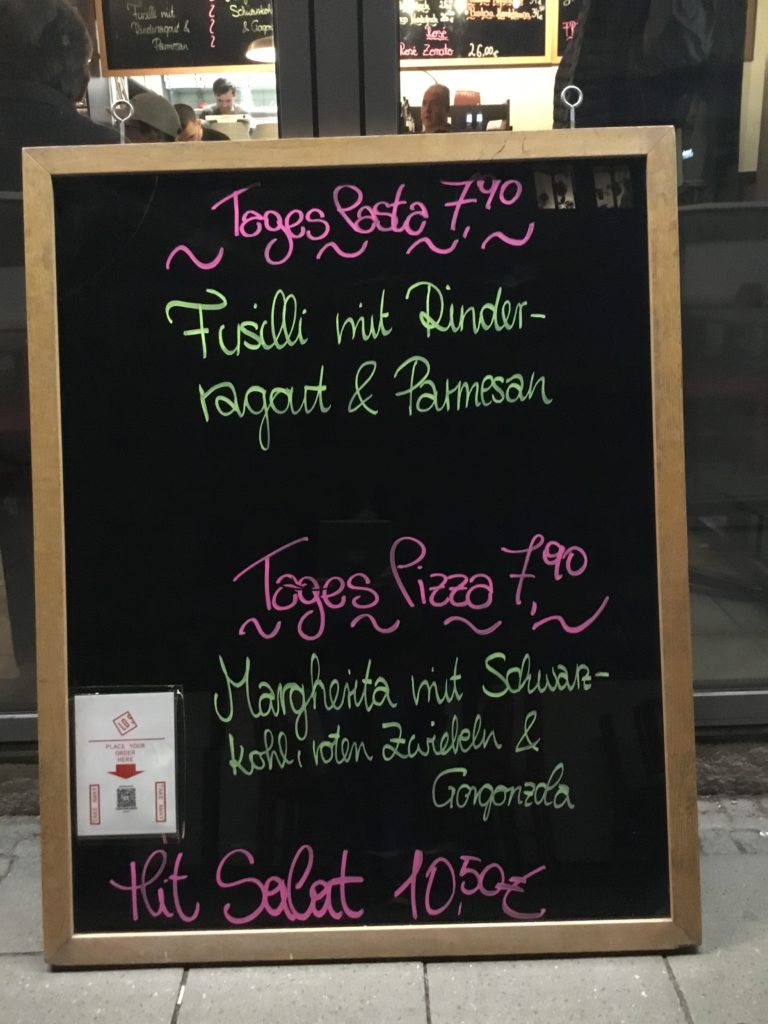 Fusilli mit
Rinderragout &
Parmesan
Schwarzkohl
Rosé
Rosé Zonato 26,00€
Tages Pasta 7,90
Fusilli mit Rinder-
ragout & Parmesan
Tages Pizza 7,90
Margherita mit Schwarz-
kohl, roten Zwiebeln &
Gorgonzola
PLACE YOUR
ORDER
HERE
Hit Salat 10,50€